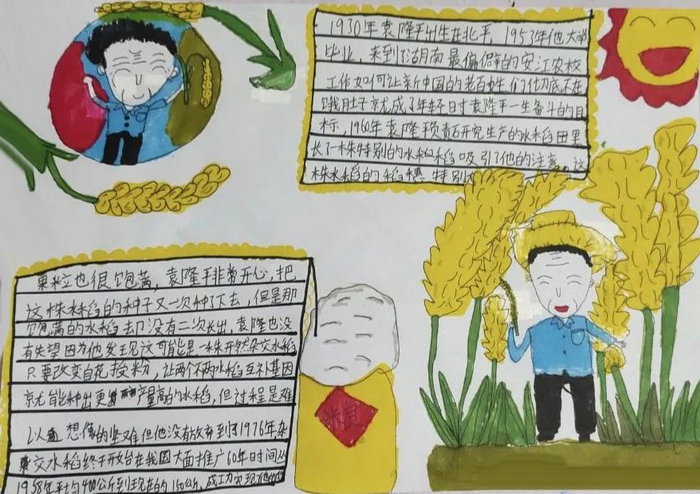 1930年袁隆平出生在北平，1953年他大学
毕业，来到了湖南最偏僻的安江农校
工作如何让新中国的老百姓们彻底不在
饿肚子就成了年轻时袁隆平一生奋斗的目
标，1960年袁隆平研究生产的水稻田里
长了一株特别的水稻稻吸引了他的注意。这
株水稻的稻穗特别
果粒也很饱满，袁隆平非常开心，把
这株水稻的种子又一次种下去，但是那
饱满的水稻却没有二次长出，袁隆也没
有失望因为他发现这可能是一株天然杂交水稻
只要改变自花授粉，让两个不两水稻互补基因
就能种出更产量高的水稻，但过程是难
以想像的坚难但他没有放弃到了1976年杂
交水稻终于开始在我国大面推广60年时间从
1958年
公斤到现在的
公斤，成功实现
粮